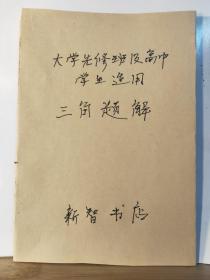 大学先修班及高中
学生适用
三角题解
新智书店